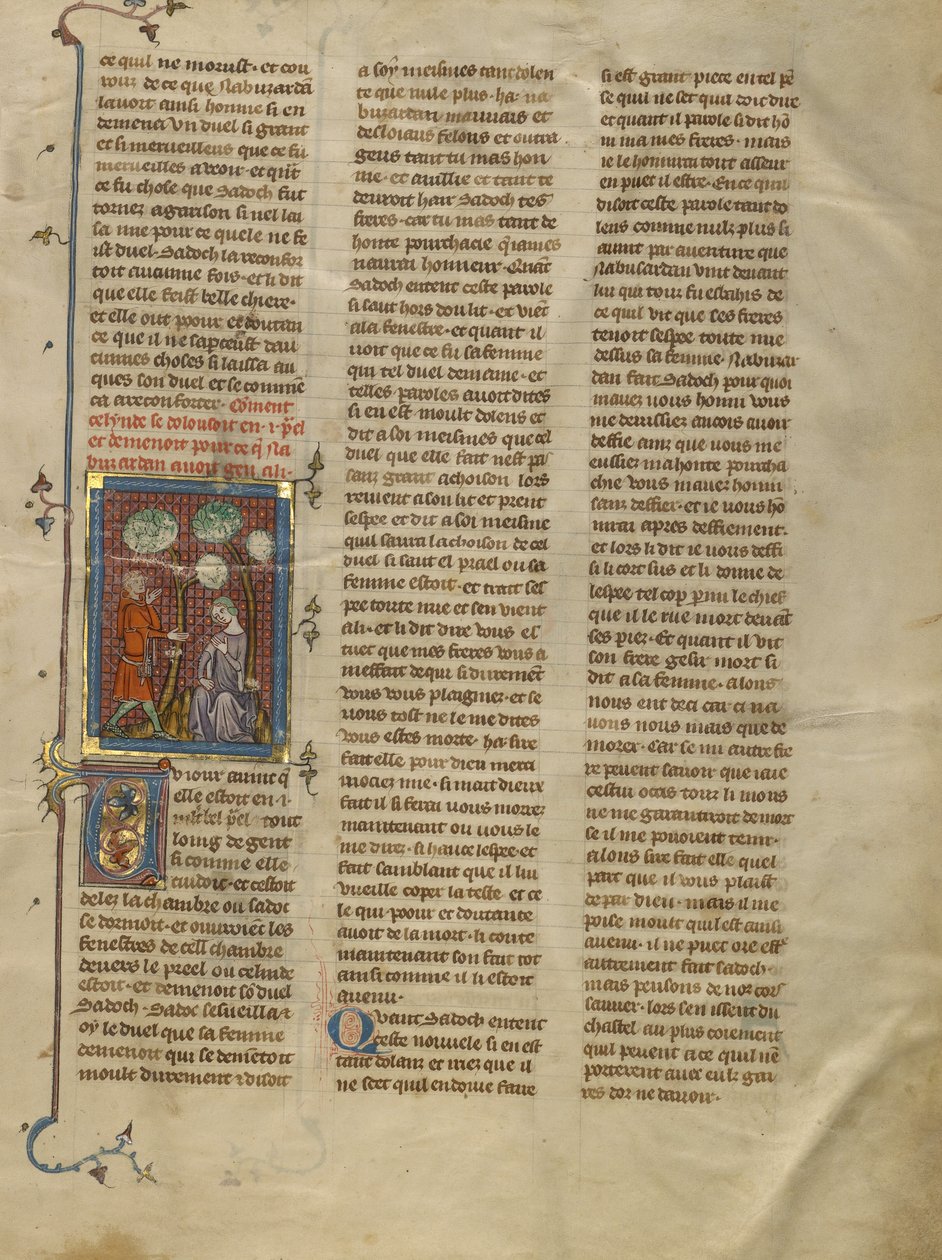 ce quil ne morust · et cou
rouz de ce que Nabuzardā
lauoit ainsi honnie si en
demena vn duel si grant
et si merueilleus que ce fu
merueilles a veoir · et q̄nt
ce fu chose que Sadoch fut
tornez a garison si nel lai
sa mie pour ce quele ne fe
ist duel · Sadoch la reconfor
toit aucunne fois · et li dit
que elle feist belle chiere ·
et elle out poour et doutan
ce que il ne sap̄ceust dau
cunnes choses si laissa au
ques son duel et se commē
ca a reconforter · Cōment
celynde se dolousoit en · i · p̄el
et demenoit pour ce q̄ Na
buzardan auoit geu a li ·
V i iour auint q̄
elle estoit en · i ·
bel p̄el tout
loing de gent
si comme elle
cuidoit · et cestoit
delez la chambre ou sadoc
se dormoit · et ouuroiēt les
fenestres de cell chambre
deuers le preel ou celinde
estoit · et demenoit sō duel
Sadoch · Sadoc sesueilla ⁊
oy le duel que sa femme
demenoit qui se demētoit
moult durement ⁊ disoit
a soy meismes tant dolen
te que nule plus · ha · na
buzardan mauuais et
desloiaus felons et outra
geus tant tu mas hon
nie · et auillie et tant te
deuroit hair Sadoch tes
freres · car tu mas tant de
honte pourchacie q̄ iames
naurai honneur · Quāt
Sadoch entent ceste parole
si saut hors dou lit · et viēt
a la fenestre · et quant il
uoit que ce fu sa femme
qui tel duel demaine · et
telles paroles auoit dites
si en est moult dolens et
dit a soi meismes que cel
duel que elle fait nest pas
sanz grant achoison lors
reuient a son lit et prent
sespee et dit a soi meisme
quil saura lachoison de cel
duel si saut el prael ou sa
femme estoit · et trait ses
pee toute nue et sen vient
a li · et li dit dire vous es
tuet que mes freres vous a
meffait de qui si duremēt
vous vous plaignez · et se
uous tost ne le me dites
vous estes morte · ha sire
fait elle pour dieu merci
nociez mie · si mait dieux
fait il si ferai vous morrez
maintenant ou uous le
me direz · si hauce lespee et
fait samblant que il lui
vueille coper la teste · et ce
le qui poour et doutance
auoit de la mort · li conte
maintenant son fait tot
ainsi comme il li estoit
auenu ·
Quant Sadoch entent
ceste nouuele si en est
tant dolanz et irez que il
ne scet quil en doiue faire
si est grant piece en tel pē
se quil ne set quil doit dire
et quant il parole si dit hō
ni ma mes freres · mais
ie le honnirai tout asseur
en puet il estre · En ce quil
disoit ceste parole tant do
lens comme nulz plus si
auint par auenture que
Nabusardan vint deuant
lui qui touz fu esbahis de
ce quil vit que ses freres
tenoit sespee toute nue
dessus sa femme · Nabuzar
dan fait Sadoch pour quoi
mauez uous honni vous
me deussiez ancois auoir
deffie ainz que vous me
eussiez ma honte pourcha
chie vous mauez honni
sanz deffier · et ie uous hō
nirai apres deffiement ·
et lors li dit ie uous deffi
si li cort sus et li donne de
lespee tel cop p̄mi le chief
que il le rue mort deuāt
ses piez · Et quant il vit
son frere gesir mort si
dit a sa femme · alons
nous ent deci car ci na
uons nous mais que de
morer · Car se mi autre fre
re peuent sauoir que iaie
cestui ocis touz li mons
ne me garantiroit de mort
se il me pouoient tenir ·
alons sire fait elle quel
part que il vous plaist
de par dieu · mais il me
poise moult quil est ainsi
auenu · il ne puet ore estre
autrement fait sadoch ·
mais pensons de noz cors
sauuer · lors sen issent du
chastel au plus coiement
quil peuent a ce quil nē
porterent auec eulz gai
res dor ne darioir ·